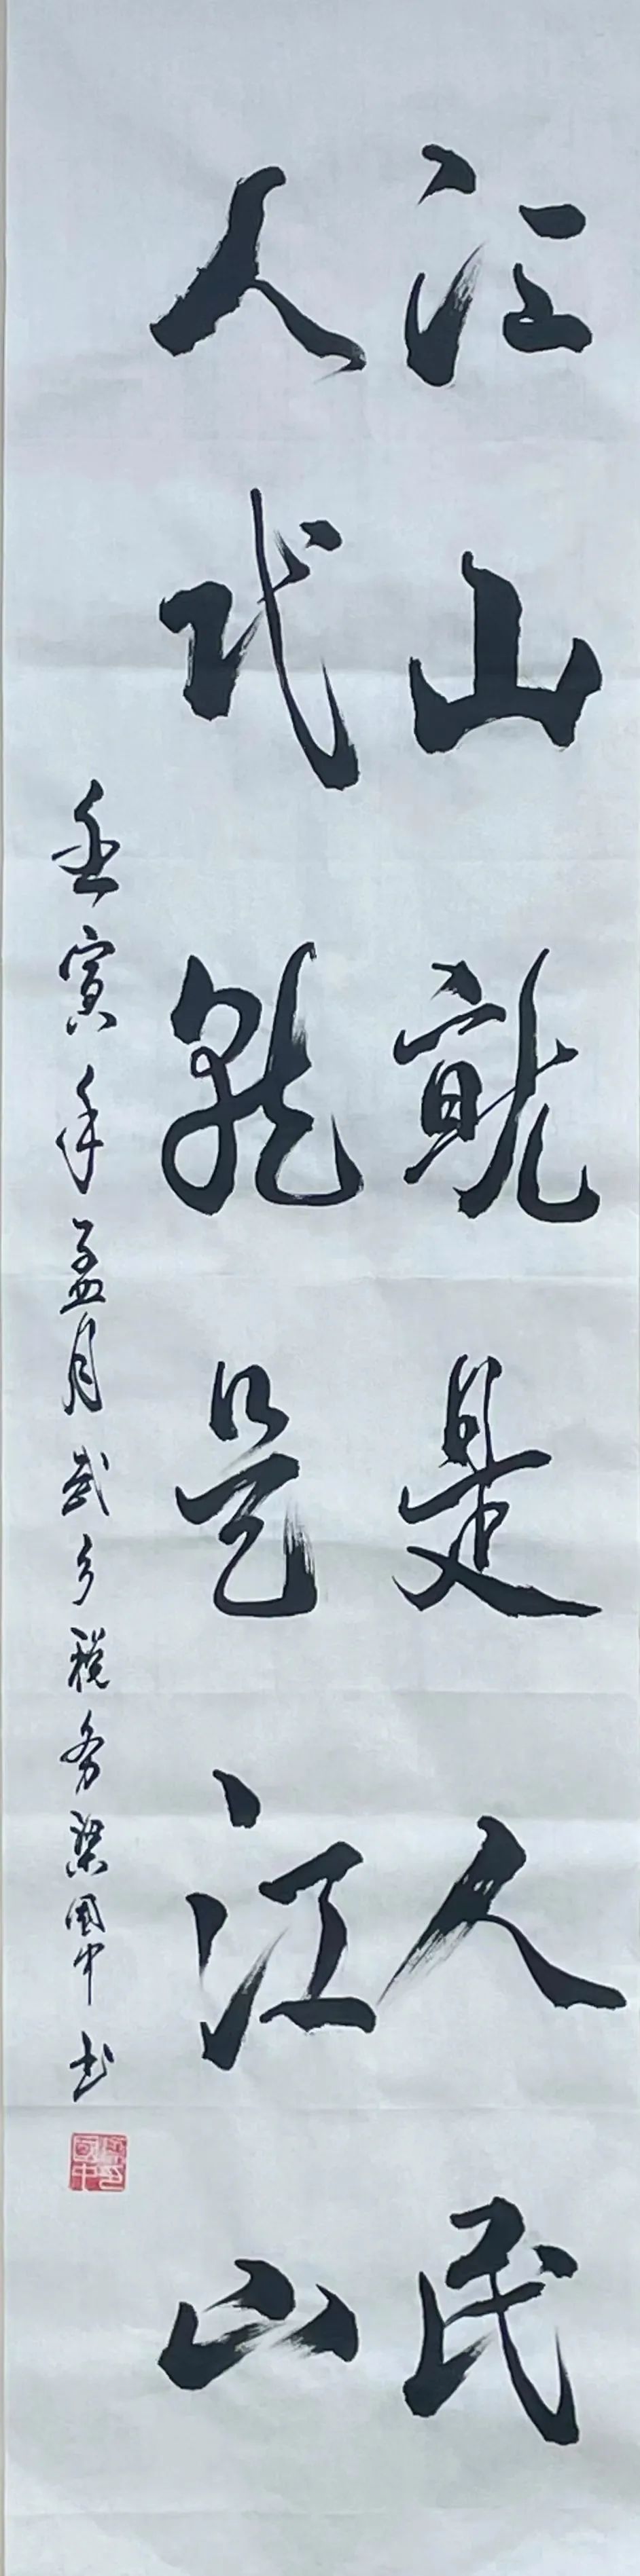 江山就是人民
人民就是江山
壬寅年孟月武乡税务梁国中书